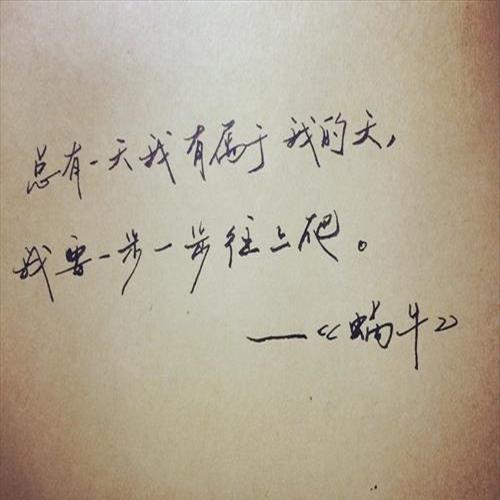 总有一天我有属于我的天，
我要一步一步往上爬。
——《蜗牛》